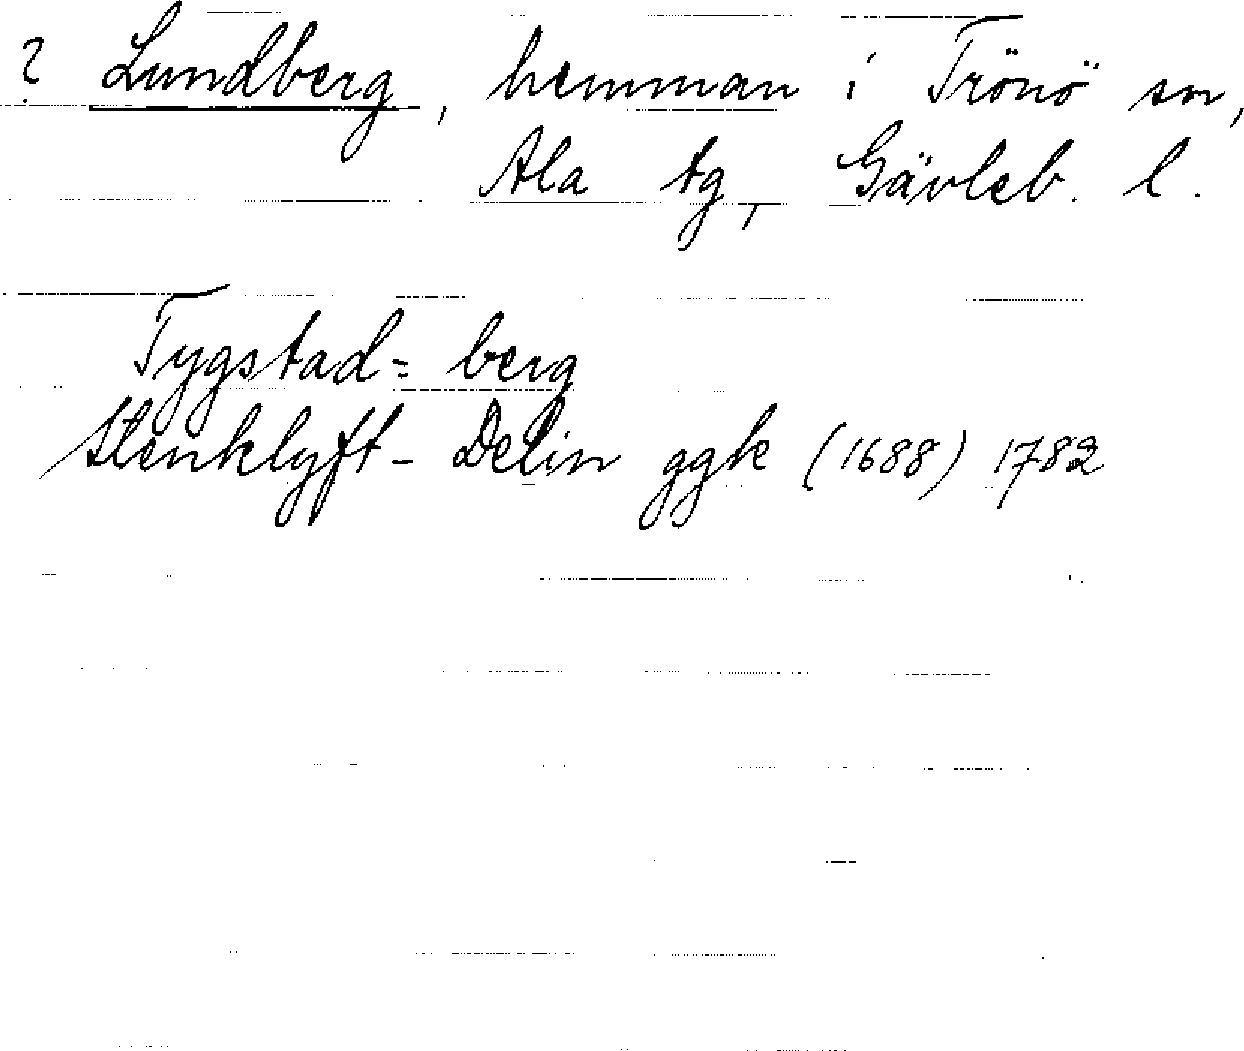 ? Lundberg, hemman i Trönö sn,
Ala tg, Gävleb. l.
Tygstad= berg
Stenklyft- Delin ggk (1688) 1782